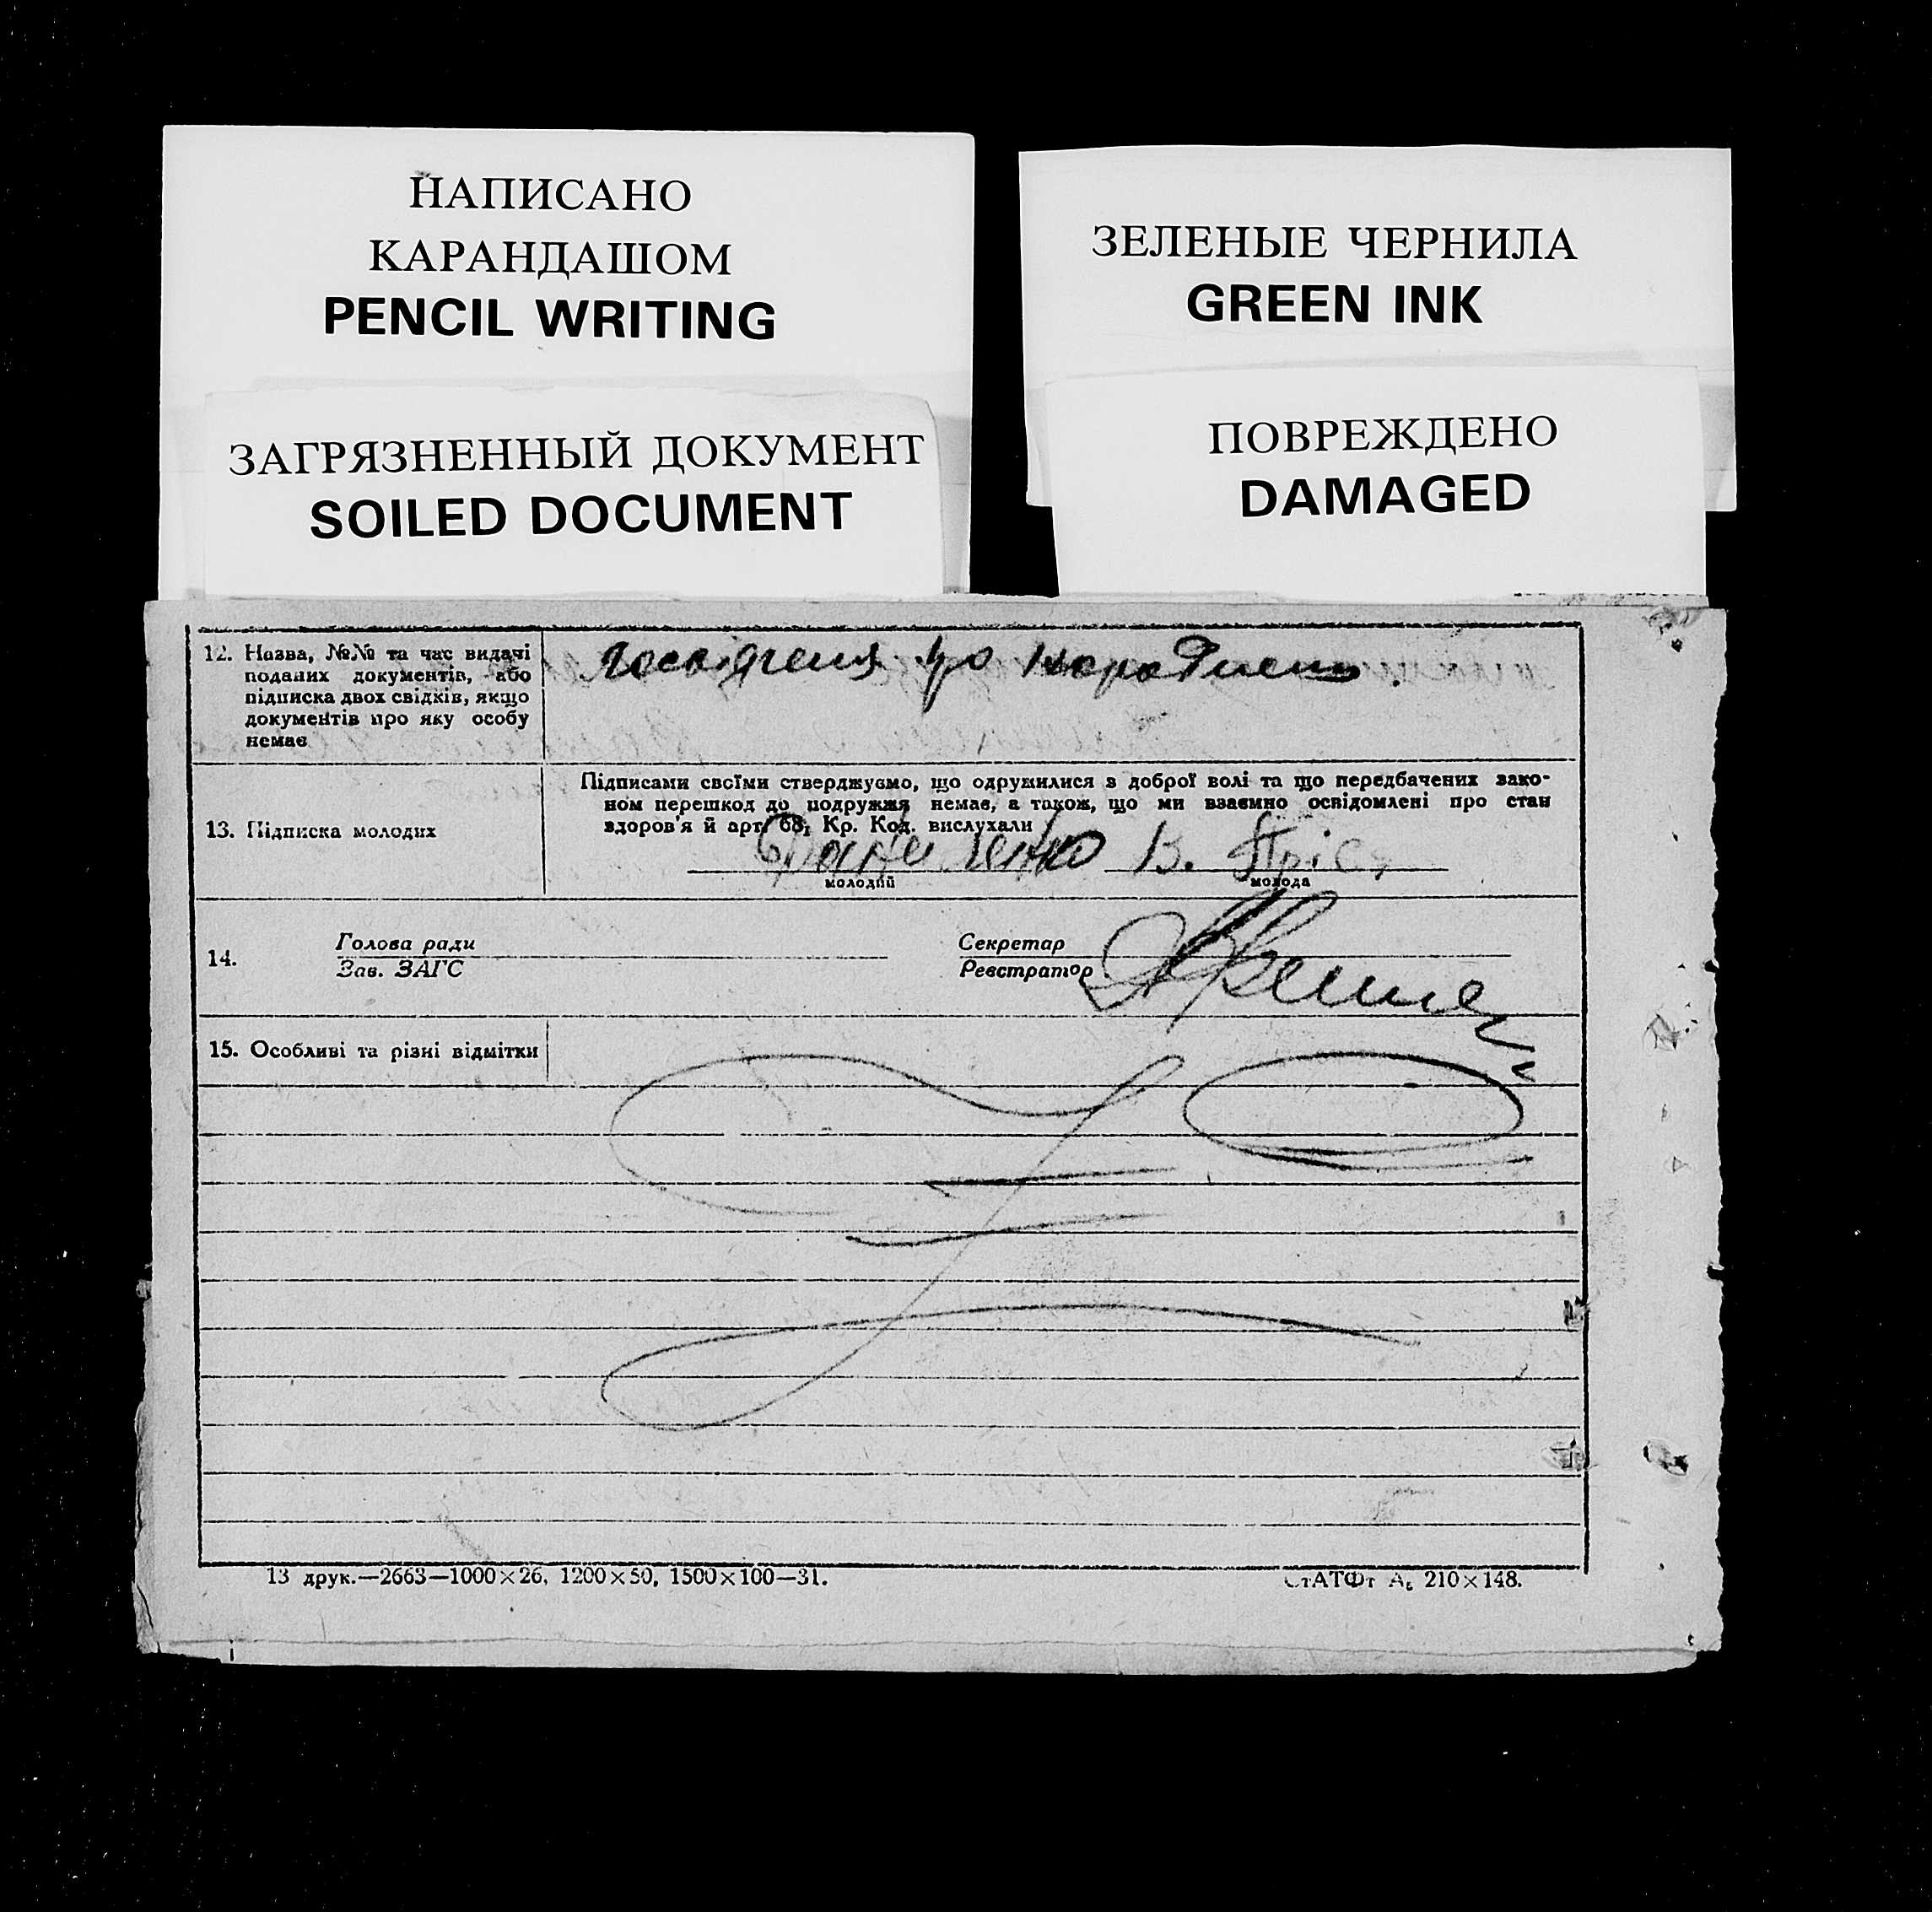 НАПИСАНО
КАРАНДАШОМ
PENCIL WRITING
ЗАГРЯЗНЕННЫЙ ДОКУМЕНТ
SOILED DOCUMENT
ЗЕЛЕНЫЕ ЧЕРНИЛА
GREEN INK
ПОВРЕЖДЕНО
DAMAGED
12. Назва, №№ та час видачі
поданих документів, або
підписка двох свідків, якщо
документів про яку особу
немає
13. Підписка молодих
Підписами своїми стверджуємо, що одружилися з доброї волі та що передбачених зако-
ном перешкод до подружжя немає, а також, що ми взаємно освідомлені про стан
здоров'я й арт. 68, Кр. Код. вислухали
В.
молодий
молода
14.
Голова ради
Зав. ЗАГС
Секретар
Реєстратор
15. Особливі та різні відмітки
13 друк.—2663—1000×26, 1200×50, 1500×100—31.
210×148.